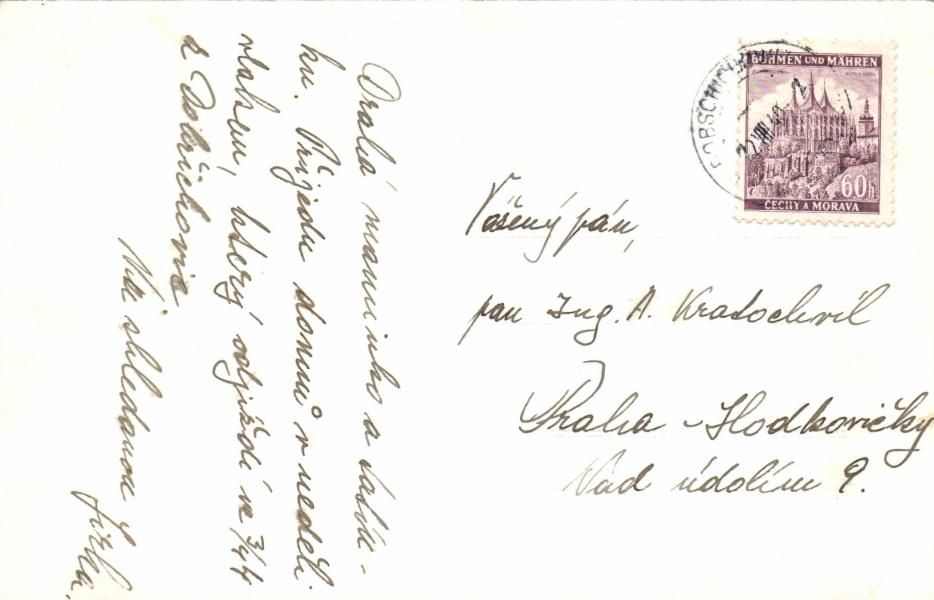 Drahá maminko a tatín-
ku. Přijedu domů v neděli
vlakem, který odjíždí ve 3/4 4
z Dobřichovic
Na shledanou
Jirka.
BÖHMEN UND MÄHREN
60h
ČECHY A MORAVA
Vážený pán,
pan Ing. A. Kratochvíl
Praha - Hodkovičky
Nad údolím 9.